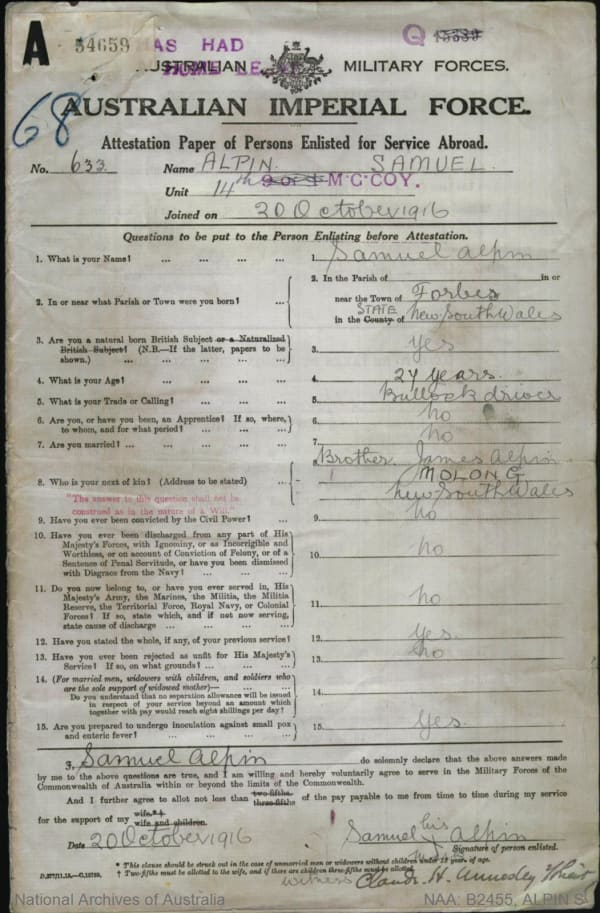 A 54659 HAS HAD Q 15389
AUSTRALIAN MILITARY FORCES.
HOME LE
68
AUSTRALIAN IMPERIAL FORCE.
Attestation Paper of Persons Enlisted for Service Abroad.
No. 633 Name ALPIN. SAMUEL.
Unit 14th M.G.COY.
Joined on 20 October 1916
Questions to be put to the Person Enlisting before Attestation.
1. What is your Name? ... ... ... ... 1. Samuel Alpin
2. In or near what Parish or Town were you born? ... 2. In the Parish of in or
near the Town of Forbes
STATE
in the County of New South Wales
3. Are you a natural born British Subject or a Naturalized
British Subject? (N.B.—If the latter, papers to be
shown.) ... ... ... ... 3. Yes
4. What is your Age? ... ... ... ... 4. 27 years.
5. What is your Trade or Calling? ... ... ... 5. Bullock driver
6. Are you, or have you been, an Apprentice? If so, where,
to whom, and for what period? ... ... ... 6. no
7. Are you married? ... ... ... ... 7. no
8. Who is your next of kin? (Address to be stated) ... 8. Brother James Alpin
MOLONG
New South Wales
"The answer to this question shall not be
construed as in the nature of a Will."
9. Have you ever been convicted by the Civil Power? ... 9. no
10. Have you ever been discharged from any part of His
Majesty's Forces, with Ignominy, or as Incorrigible and
Worthless, or on account of Conviction of Felony, or of a
Sentence of Penal Servitude, or have you been dismissed
with Disgrace from the Navy? ... ... ... 10. no
11. Do you now belong to, or have you ever served in, His
Majesty's Army, the Marines, the Militia, the Militia
Reserve, the Territorial Force, Royal Navy, or Colonial
Forces? If so, state which, and if not now serving,
state cause of discharge ... ... ... ... 11. no
12. Have you stated the whole, if any, of your previous service? 12. Yes.
13. Have you ever been rejected as unfit for His Majesty's
Service? If so, on what grounds? ... ... ... 13. no
14. (For married men, widowers with children, and soldiers who
are the sole support of widowed mother)— ... ...
Do you understand that no separation allowance will be issued
in respect of your service beyond an amount which
together with pay would reach eight shillings per day? 14.
15. Are you prepared to undergo inoculation against small pox
and enteric fever? ... ... ... ... 15. Yes.
I, Samuel Alpin do solemnly declare that the above answers made
by me to the above questions are true, and I am willing and hereby voluntarily agree to serve in the Military Forces of the
Commonwealth of Australia within or beyond the limits of the Commonwealth.
And I further agree to allot not less than two-fifths three-fifths of the pay payable to me from time to time during my service
for the support of my wife*† wife and children.
Date 20 October 1916 Samuel his Alpin
Signature of person enlisted.
* This clause should be struck out in the case of unmarried men or widowers without children under 18 years of age.
† Two-fifths must be allotted to the wife, and if there are children three-fifths must be allotted.
Witness Claude H. Annesley
National Archives of Australia NAA: B2455, ALPIN S